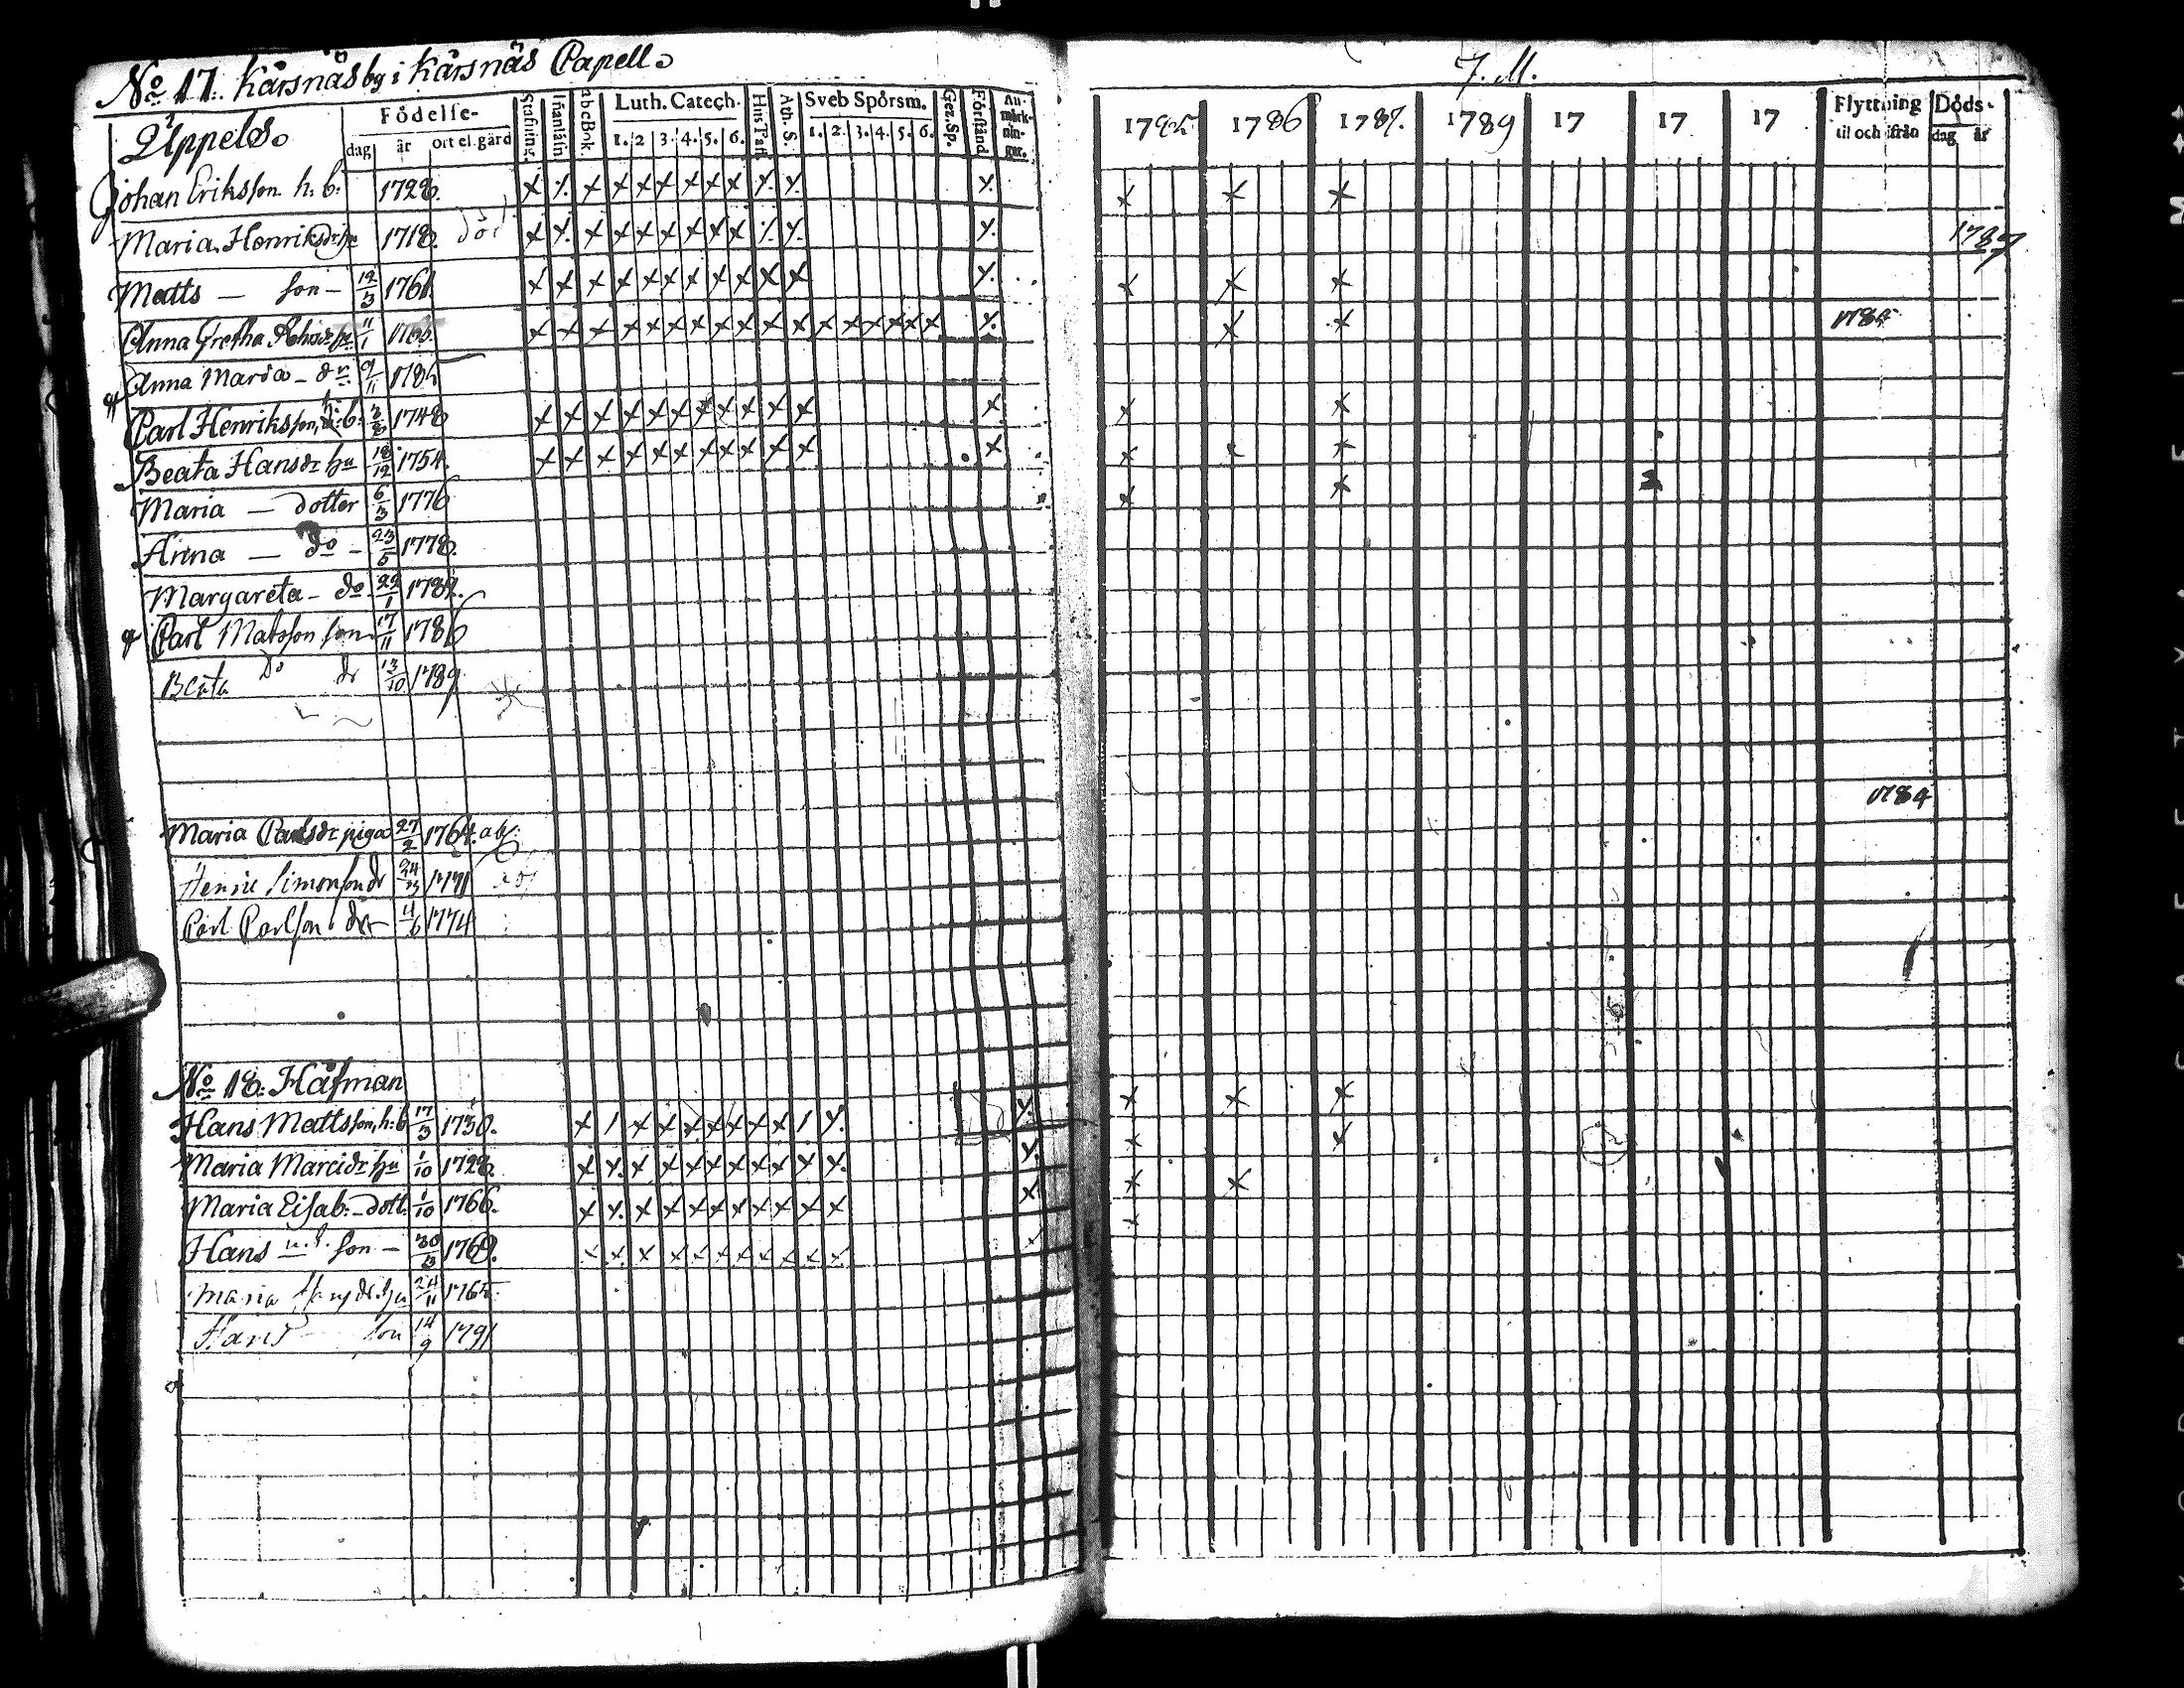 No 17. Kårsnäs by i Kårsnäs Capell.
Äppels.
Födelse-
dag år ort el. gård
Stafning.
Innanläsn
abcBok.
Luth. Catech.
1. 2 3. 4. 5. 6.
Hus Tafl.
Ath. S.
Sveb Spörsm.
1. 2. 3. 4. 5. 6.
Gez. Sp.
Förstånd
An-
märk-
nin-
gar.
Johan Eriksson h. b. 1728.
Maria Henriksdr hu 1718. död
Matts — son — 12/3 1761.
Anna Gretha hu 11/1
Anna Maria - dr 9/11 1785
Carl Henriksson, h: b: 3/8 1748
Beata Hansdr hu 18/12 1754.
Maria — dotter 6/3 1776
Anna — do - 23/5 1778.
Margareta - do 22/1 1782.
Carl Matsson son 17/11 1786
Beata Do dr 13/10 1789
Maria Carlsdr piga 27/2 1764. abs.
Henric Simonson dr 24 1771
Carl Carlson dr 4/6 1774
No 18. Håfman
Hans Mattsson, h: b 17/3 1730.
Maria Marcidr hu 1/10 1728.
Maria Elsab: - dott. 1/10 1766.
Hans son — 30/3 1769.
Maria hu 24/11 1765.
Hans son 14/9 1791
J. M.
1785 1786 1787. 1789 17 17 17
Flyttning
til och ifrån
Döds-
dag år
1787
1785
1784